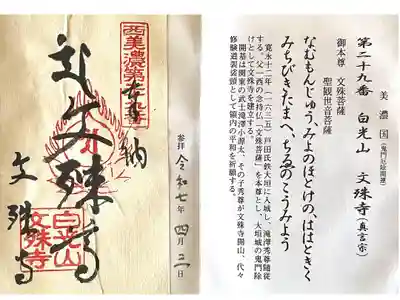 美濃国
(鬼門厄除開運)
第二十九番 白光山 文殊寺(真言宗)
御本尊 文殊菩薩
聖観世音菩薩
なむもんじゅう、みよのほとけの、ははときく
みちびきたまへ、ちゑのこうみよう
寛永十二年(一六三五)戸田氏鉄大垣に入城し、滝澤秀尊随従
する。父一西の念持仏「文殊菩薩」を本尊とし、大垣城の鬼門除
けとして文殊寺を建立する。
開基は関東の武士滝澤小源太、その子秀尊が文殊寺開山、代々
修験道袈裟頭として領内の平和を祈願する。
参拝 令和七年 四月 日
西美濃第
奉納
文殊
文殊寺
白光山
文殊寺